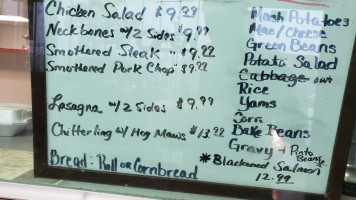 Chicken Salad $9.99
Neckbones w/2 Sides $9.99
Smothered Steak " $9.99
Smothered Pork Chop $9.99
Lasagna w/2 Sides $9.99
Chitterling w/ Hog Maws $13.99
Bread: Roll or Cornbread
Mash Potatoes
Mac/Cheese
Green Beans
Potato Salad
Cabbage out
Rice
Yams
Corn
Bake Beans
Gravy + Pinto Beans
*Blackened Salmon
12.99